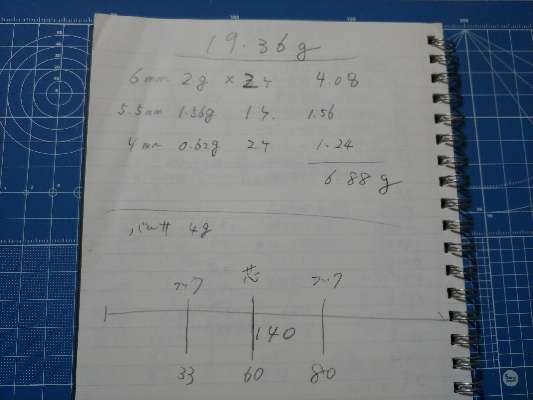 19.36g
6mm 2g × 2ケ 4.08
5.5mm 1.56g 1ケ. 1.56
4mm 0.62g 2ケ 1.24
6.88g
バルサ 4g
フック 芯 フック
140
33 60 80